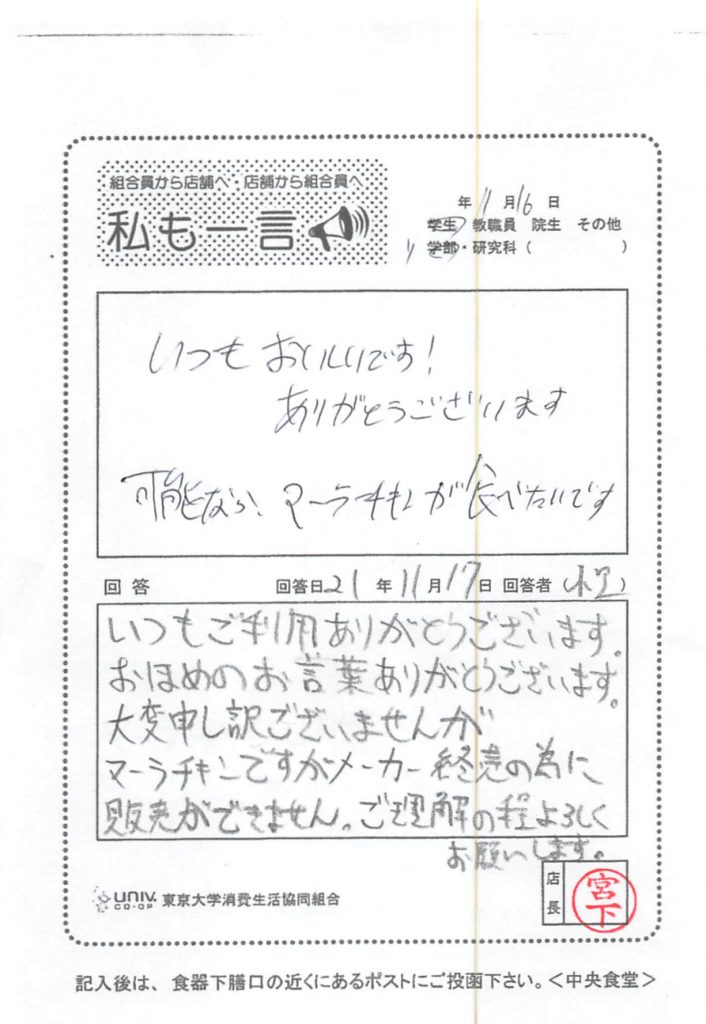 組合員から店舗へ・店舗から組合員へ
私も一言
年 11月16日
学生 教職員 院生 その他
学部・研究科( )
いつもおいしいです!
ありがとうございます
可能なら、マーラチキンが食べたいです
回答 回答日21年11月17日 回答者( )
いつもご利用ありがとうございます。
おほめのお言葉ありがとうございます。
大変申し訳ございませんが
マーラチキンですがメーカー終売の為に、
販売ができません。ご理解の程よろしく
お願いします。
UNIV. CO-OP 東京大学消費生活協同組合
店長 宮下
記入後は、食器下膳口の近くにあるポストにご投函下さい。<中央食堂>